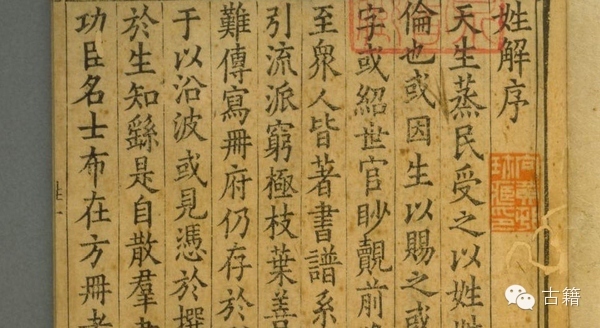 姓解序
天生蒸民受之以姓
倫也或因生以賜之或
字或紹世官眇覿前
至衆人皆著書譜系
引流派窮極枝葉善
難傳寫冊府仍存於
于以沿波或見憑於撰
於生知繇是自散羣
功臣名士布在方冊者
古籍